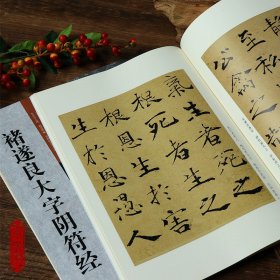 氣生者死之
根死者生之
根恩生於害
生於恩愚人
至私
公禽之制
褚遂良大字阴符经